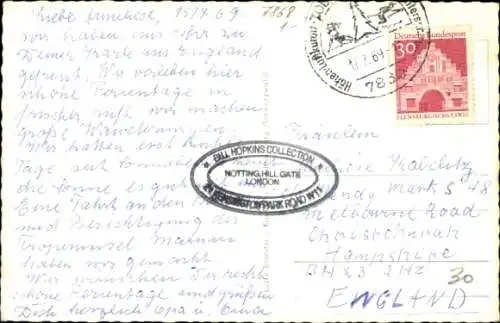 Liebe Anneliese, 15/7 69
7868
1-
Wir haben uns sehr zu
Deiner Karte aus England
gefreut. Wir verleben hier
schöne Ferientage in
frischer Luft, wir machen
große Wanderungen
Wir hatten erst
Tage
die Sonne es gut
Eine Fahrt an den
und Besichtigung der
Tropeninsel Mainau
haben wir gemacht
Wir wünschen Dir recht
schöne Ferientage und grüßen
Dich herzlich Opa u. Oma
Höhenluftkurort
17.7.69
783
Deutsche Bundespost
30
FLENSBURG/SCHLESWIG
★ BILL HOPKINS COLLECTION ★
NOTTING HILL GATE
LONDON
KENSINGTON PARK ROAD W11
Fräulein
Wendy Mark S 48
Melbourne Road
Christchurch
Hampshire
BH23 2HZ
30
ENGLAND